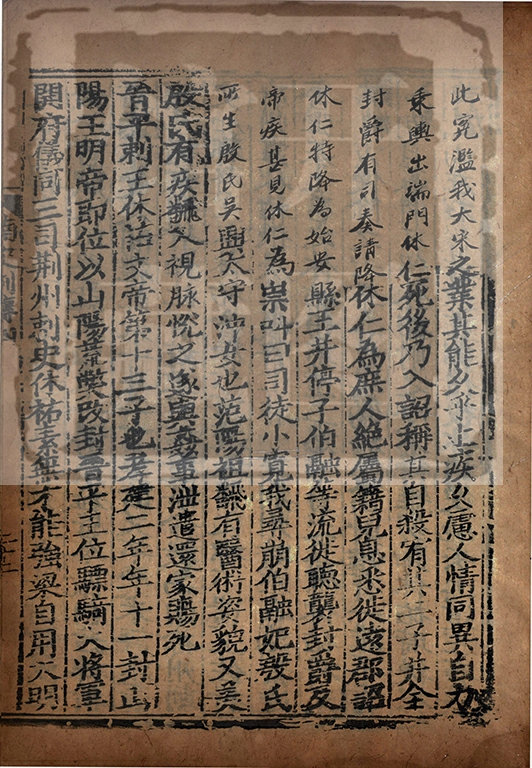 此冤濫我大宋之業其能久乎上疾久慮人情同異自力
乘輿出端門休仁死後乃入詔稱其自殺宥其二子并全
封爵有司奏請降休仁為庶人絕屬籍兒息悉徙遠郡詔
休仁特降為始安縣王并停子伯融等流徙聽襲封爵及
帝疾甚見休仁為祟叫曰司徒小寬我尋崩伯融妃殷氏
所生殷氏吳興太守沖女也范陽祖飜有醫術姿貌又美
殷氏有疾飜入視脉悅之遂與姦事泄遣還家賜死
晉平剌王休祐文帝第十三子也孝建二年年十一封山
陽王明帝即位以山陽荒弊改封晉平王位驃騎大將軍
開府儀同三司荊州刺史休祐素無才能強梁自用大明